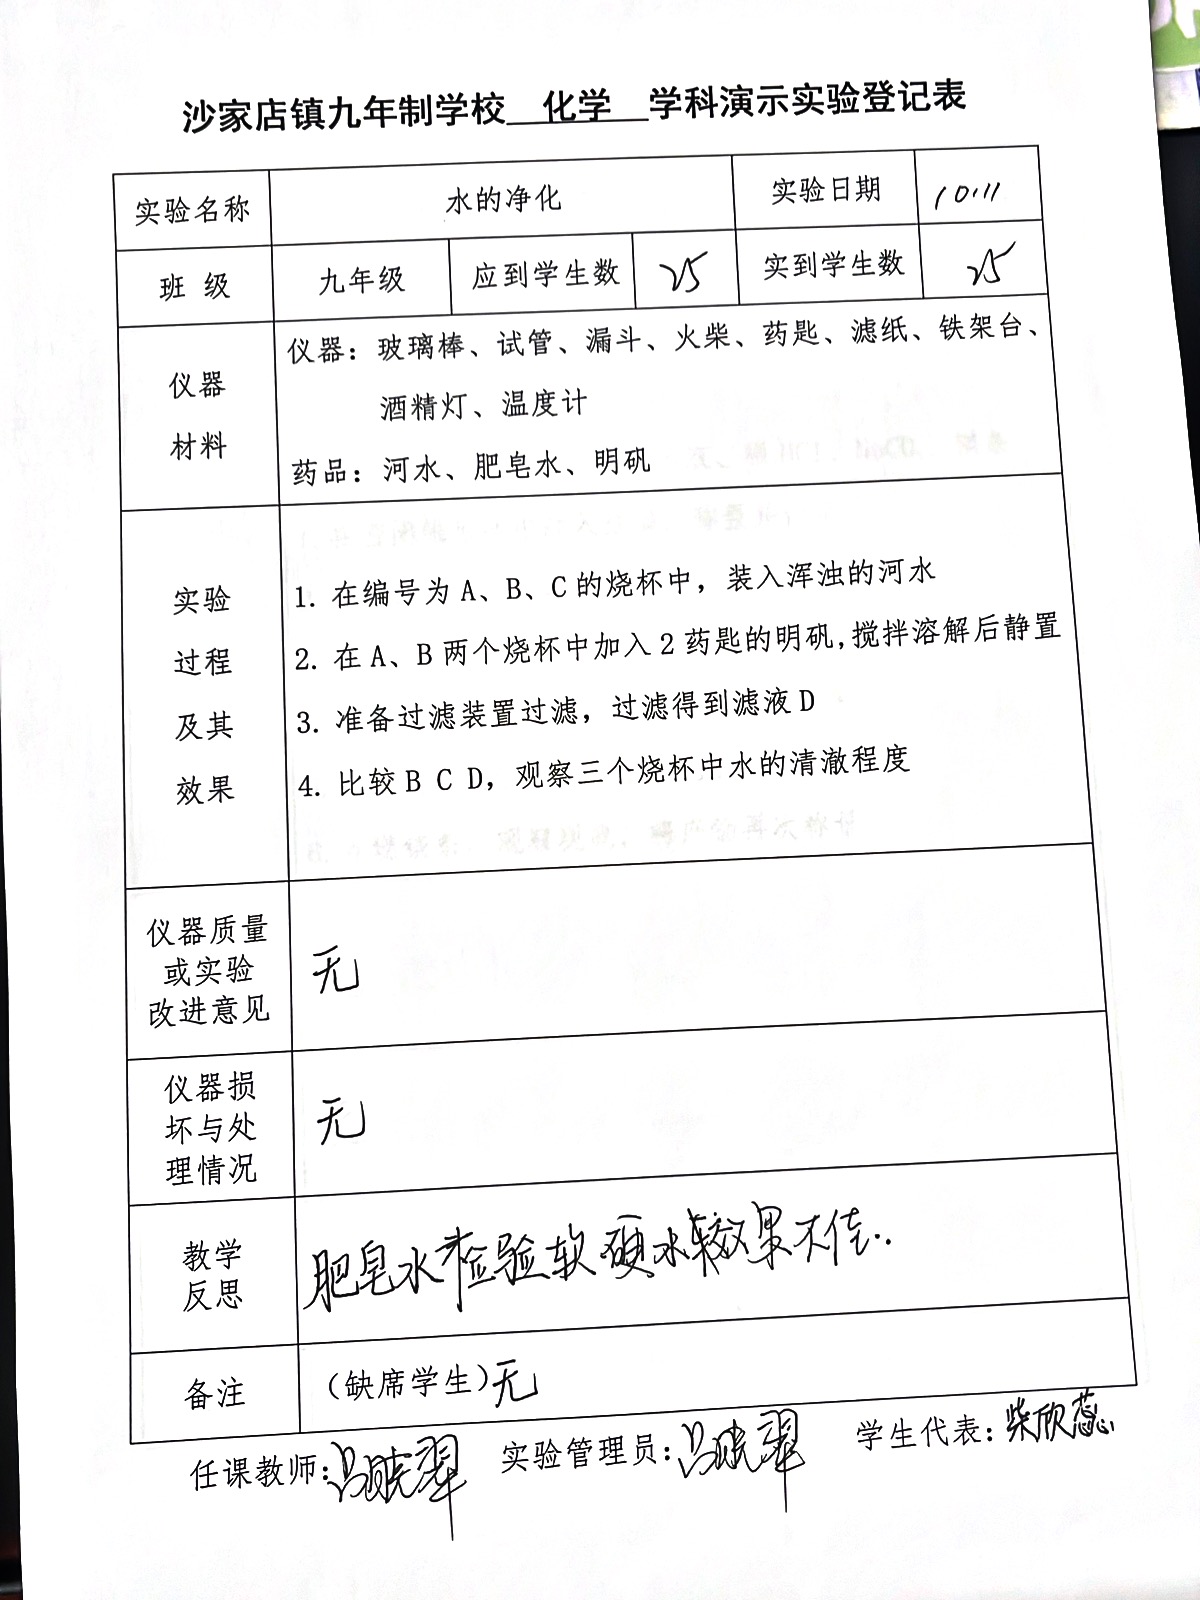 沙家店镇九年制学校 化学 学科演示实验登记表
实验名称 水的净化 实验日期 10.11
班 级 九年级 应到学生数 25 实到学生数 25
仪器
材料
仪器：玻璃棒、试管、漏斗、火柴、药匙、滤纸、铁架台、
酒精灯、温度计
药品：河水、肥皂水、明矾
实验
过程
及其
效果
1. 在编号为 A、B、C 的烧杯中，装入浑浊的河水
2. 在 A、B 两个烧杯中加入 2 药匙的明矾,搅拌溶解后静置
3. 准备过滤装置过滤，过滤得到滤液 D
4. 比较 B C D，观察三个烧杯中水的清澈程度
仪器质量
或实验
改进意见
无
仪器损
坏与处
理情况
无
教学
反思
肥皂水检验软硬水效果不佳..
备注 （缺席学生）无
任课教师: 实验管理员: 学生代表: 柴欣蕊